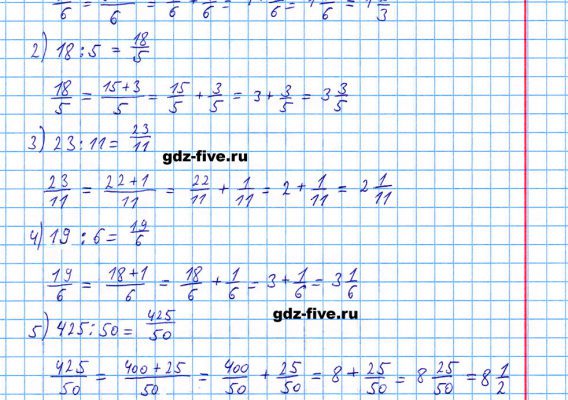 2) 18 : 5 = 18/5
18/5 = 15+3/5 = 15/5 + 3/5 = 3 + 3/5 = 3 3/5
3) 23 : 11 = 23/11
gdz-five.ru
23/11 = 22+1/11 = 22/11 + 1/11 = 2 + 1/11 = 2 1/11
4) 19 : 6 = 19/6
19/6 = 18+1/6 = 18/6 + 1/6 = 3 + 1/6 = 3 1/6
gdz-five.ru
5) 425 : 50 = 425/50
425/50 = 400+25/50 = 400/50 + 25/50 = 8 + 25/50 = 8 25/50 = 8 1/2